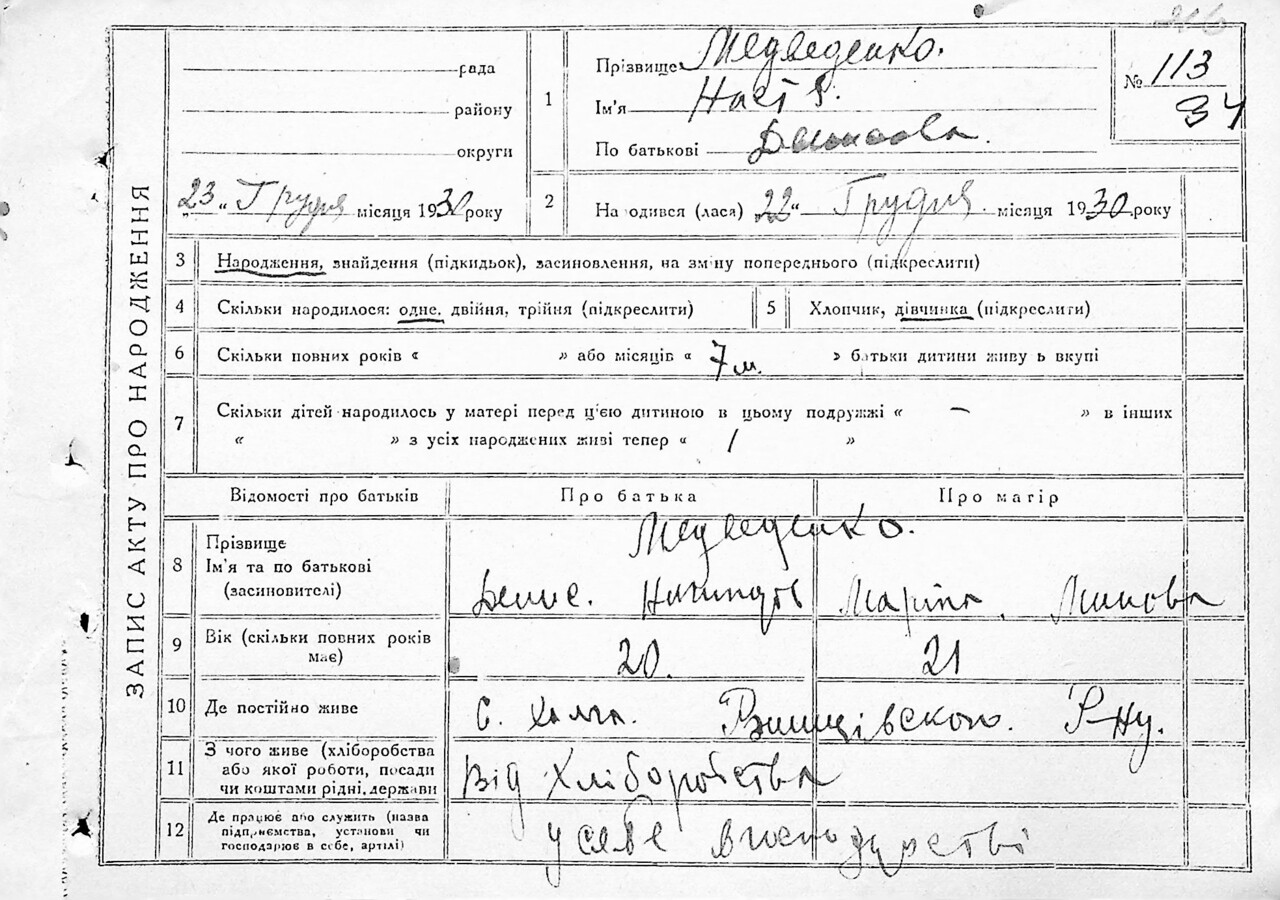 ЗАПИС АКТУ ПРО НАРОДЖЕННЯ
рада
району
округи
23 „ Грудня місяця 1930 року
1
Прізвище Медведенко.
Ім'я
По батькові
№ 113
34
2
На одився (лася) 22 “ Грудня місяця 1930 року
3 Народження, знайдення (підкидьок), засиновлення, на зміну попереднього (підкреслити)
4 Скільки народилося: одне, двійня, трійня (підкреслити)
5 Хлопчик, дівчинка (підкреслити)
6 Скільки повних років « » або місяців « 7 м. » батьки дитини живу ь вкупі
7 Скільки дітей народилось у матері перед ц'єю дитиною в цьому подружжі « — » в інших
« » з усіх народжених живі тепер « 1 »
Відомості про батьків Про батька Про матір
8 Прізвище
Ім'я та по батькові
(засиновителі)
Медведенко.
Денис.
9 Вік (скільки повних років
має)
20. 21
10 Де постійно живе с. Р-ну.
11 З чого живе (хліборобства
або якої роботи, посади
чи коштами рідні, держави
Від Хліборобства
12 Де працює або служить (назва
підприємства, установи чи
господарює в себе, артілі)
у себе в господарстві